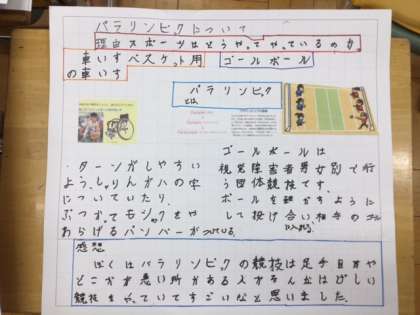 パラリンピックについて
理由 スポーツはどうやってやっているのか。
車いすバスケット用の車いす
ゴールボール
パラリンピックとは、
・ターンがしやすい
よう、しゃりんがハの字
についていたり、
ぶつかってもショックをや
わらげるバンパーがついている。
ゴールボールは
視覚障害者男女別で行
う団体競技です。
ボールを転がすように
して投げ合い相手の
に入れる。
感想
ぼくはパラリンピックの競技は足手目耳や
どこかが悪い所がある人がそんなはげしい
競技をやっていてすごいなと思いました。